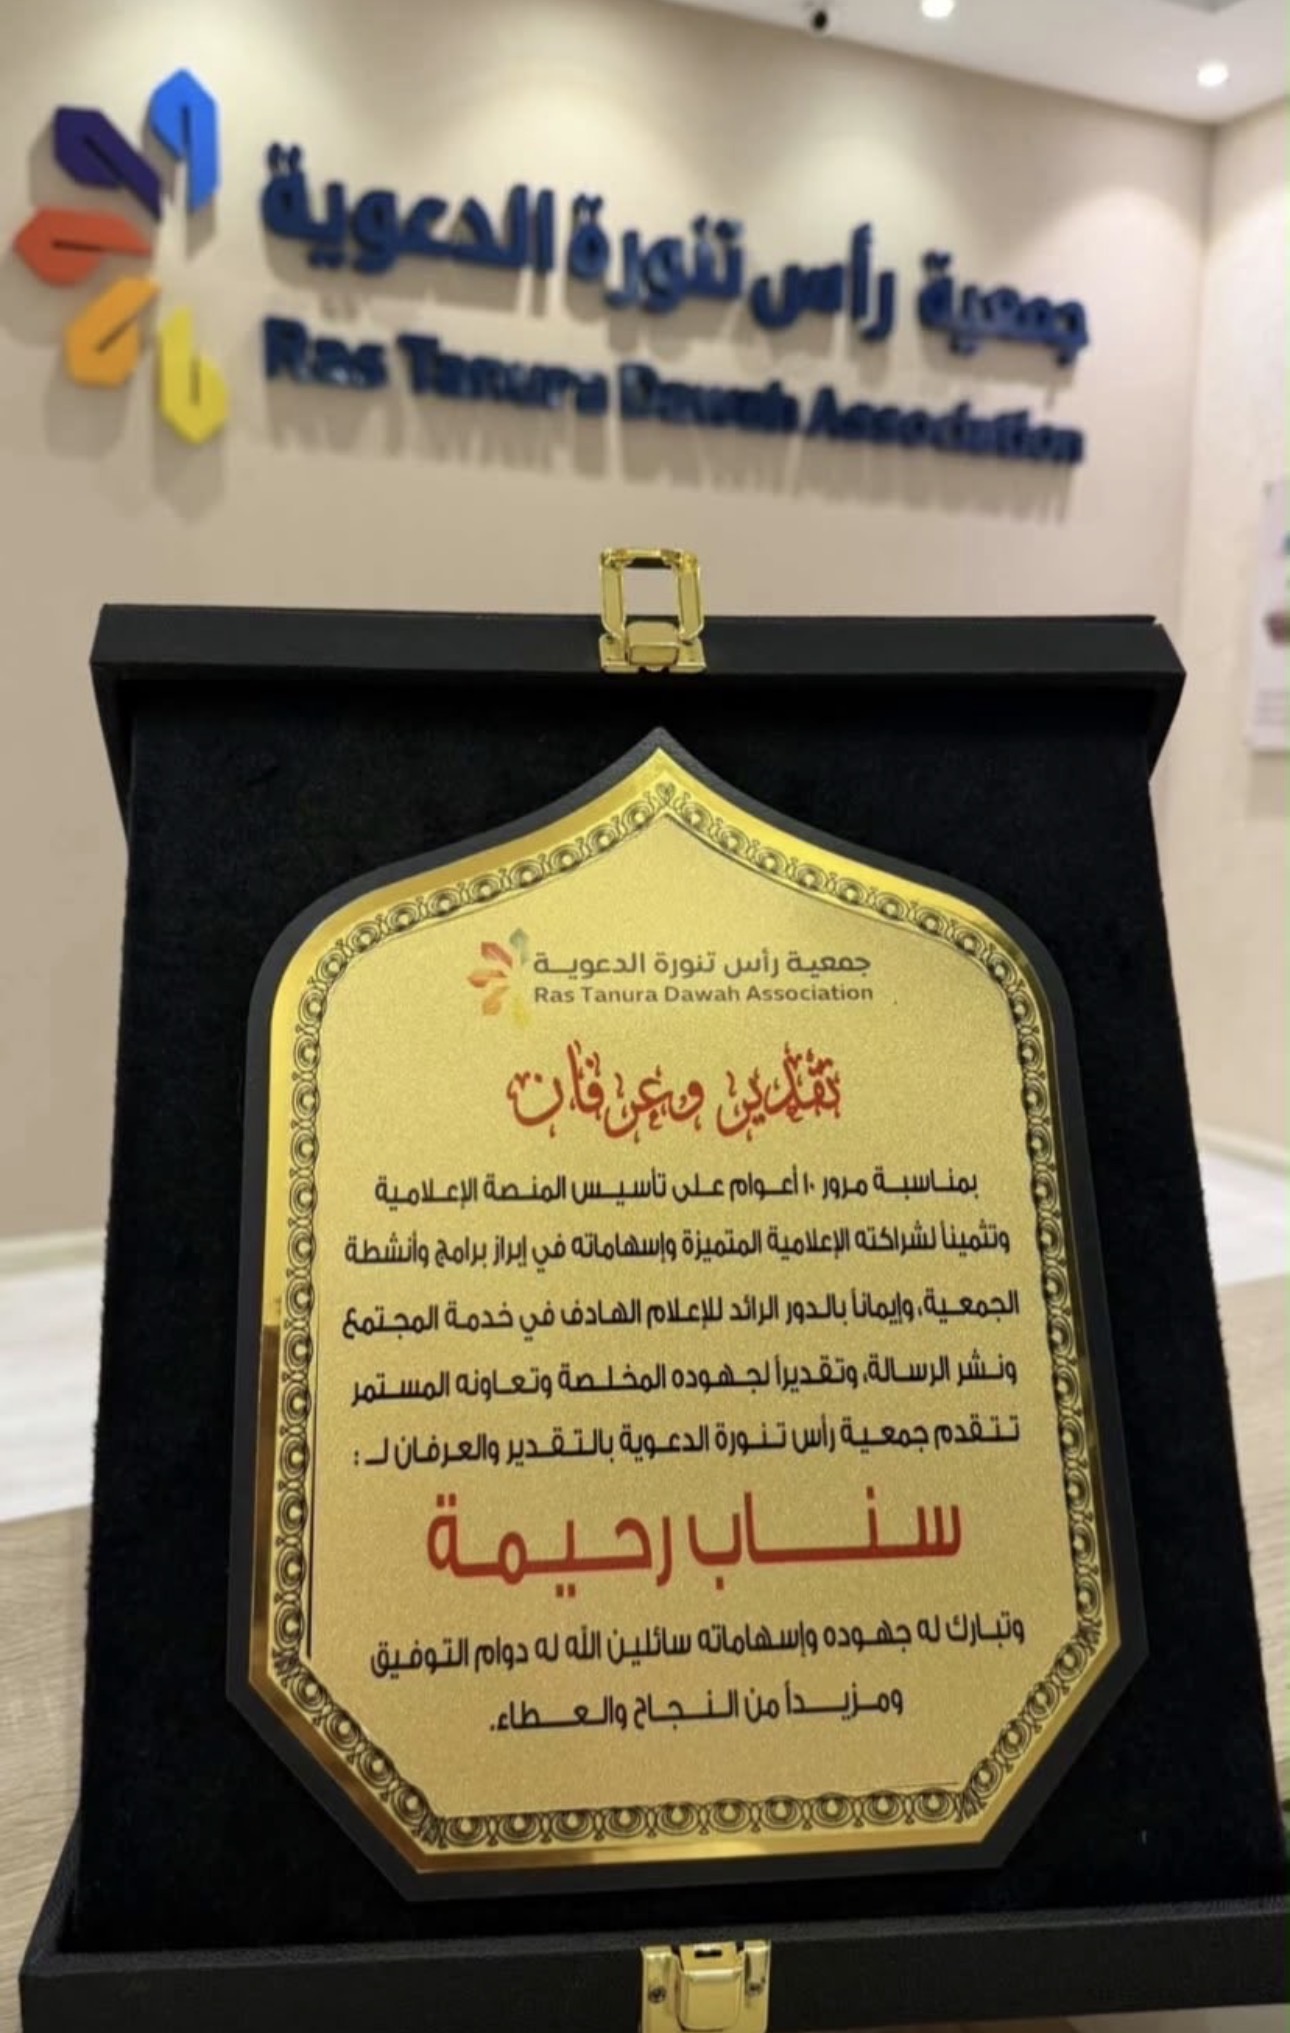 جمعية رأس تنورة الدعوية
Ras Tanura Dawah Association
جمعية رأس تنورة الدعوية
Ras Tanura Dawah Association
تقدير وعرفان
بمناسبة مرور ١٠ أعوام على تأسيس المنصة الإعلامية
وتثميناً لشراكته الإعلامية المتميزة وإسهاماته في إبراز برامج وأنشطة
الجمعية، وإيماناً بالدور الرائد للإعلام الهادف في خدمة المجتمع
ونشر الرسالة، وتقديراً لجهوده المخلصة وتعاونه المستمر
تتقدم جمعية رأس تنورة الدعوية بالتقدير والعرفان لـ :
سناب رحيمة
وتبارك له جهوده وإسهاماته سائلين الله له دوام التوفيق
ومزيداً من النجاح والعطاء.